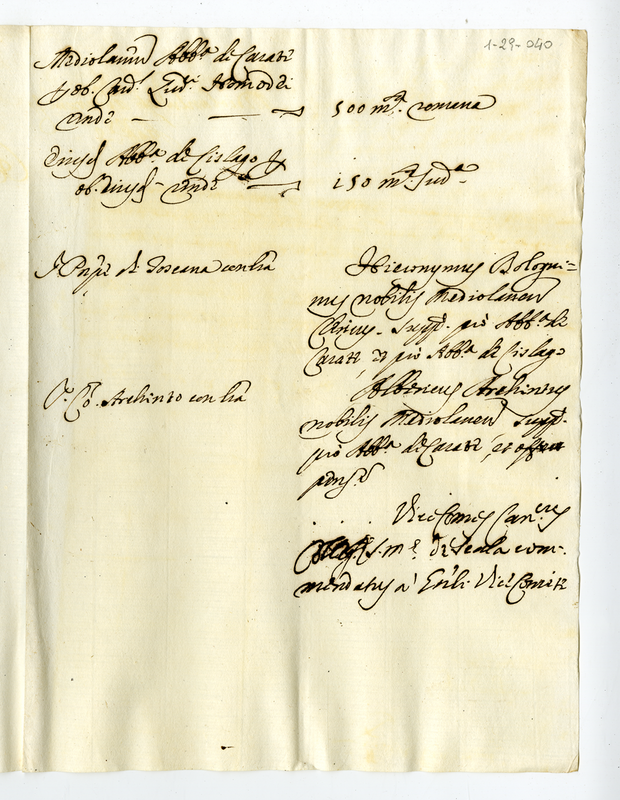 1-29-040
Mediolanen Abb.a di Carate
p ob. Card. Lud. Homodei
unde
500 m.ta romana
Eiusd Abb.a di Cislago p
ob. eiusd unde
150 m.ta Sud.a
di Toscana con l'ra
Hieronymus Bologni=
nus nobilis Mediolanen
Clericus. Supp. pro Abb.a di
Carate, et pro Abb.a di Cislago
Co. Archinto con l'ra
Albericus Archintus
nobilis Mediolanen supp.
pro Abb.a di Carate, et
Vicecomes Can.cus
S. M. di Scala com-
mendatus a Vicecomite